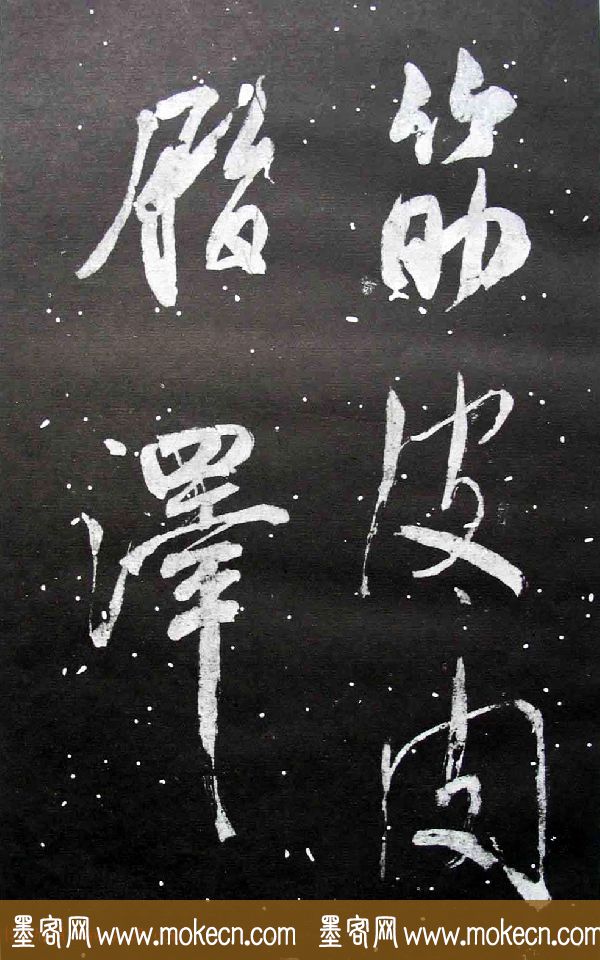 筋皮肉
脂澤
墨客网 www.mokecn.com 墨客网 www.mokecn.com